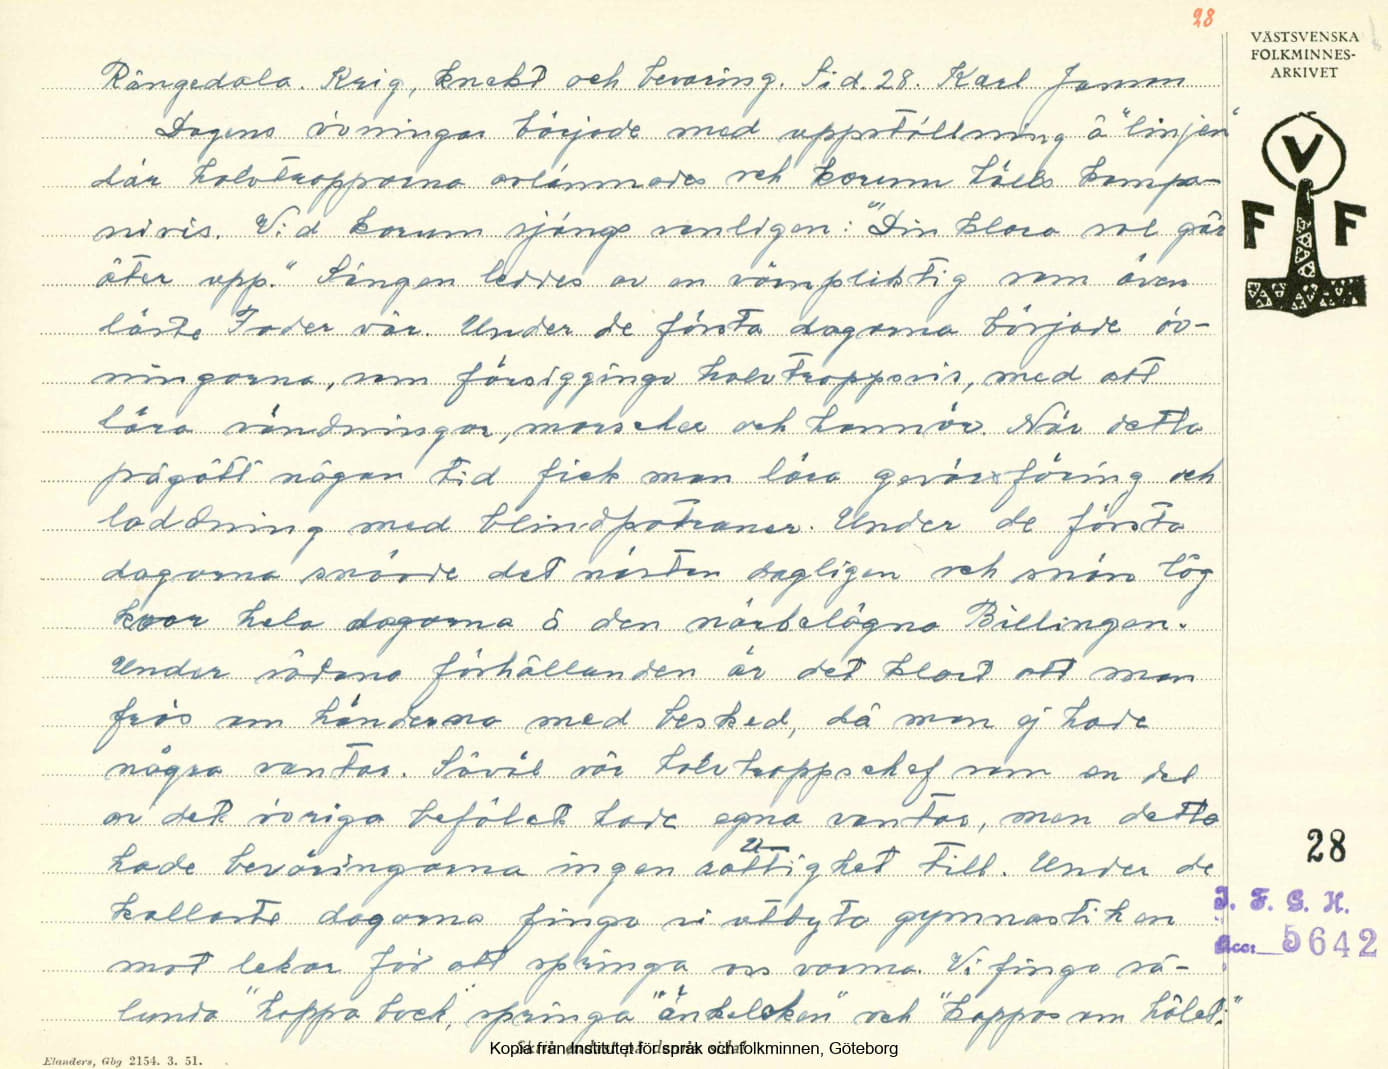 28
VÄSTSVENSKA
FOLKMINNES-
ARKIVET
V
F F
Rångedala. Krig, knekt och bevaring. Sid. 28. Karl Janson
Dagens övningar började med uppställning å "linjen"
där halvtropparna avlämnades och korum hölls kompa-
nivis. Vid korum sjöngs vanligen: "Din klara sol går
åter upp." Sången leddes av en värnpliktig som även
läste Fader vår. Under de första dagarna började öv-
ningarna, som försiggingo halvtroppsvis, med att
lära vändningar, marscher och honnör. När detta
pågått någon tid fick man lära gevärsföring och
laddning med blindpatroner. Under de första
dagarna snöade det nästan dagligen och snön låg
kvar hela dagarna å den närbelägna Billingen.
Under sådana förhållanden är det klart att man
frös om händerna med besked, då man ej hade
några vantar. Såväl vår halvtroppschef som en del
av det övriga befälet hade egna vantar, men detta
hade beväringarna ingen rättighet till. Under de
kallaste dagarna fingo vi utbyta gymnastiken
mot lekar för att springa oss varma. Vi fingo så-
lunda "hoppa bock", springa "änkeleken" och "kappas om hålet."
28
I. F. G. H.
Acc. 5642
Elanders, Gbg 2154. 3. 51.
Kopia från Institutet för språk och folkminnen, Göteborg